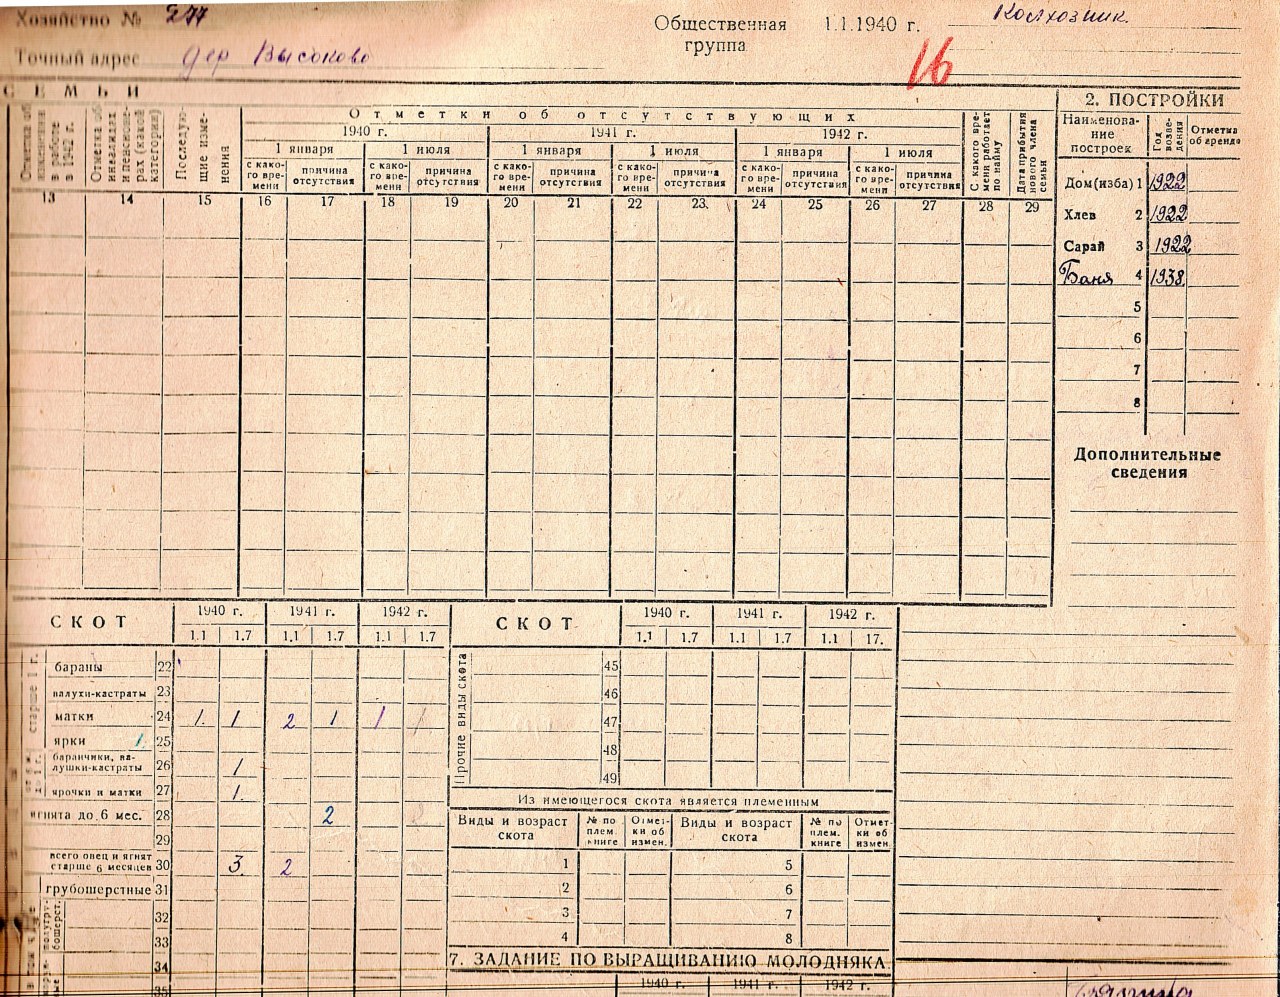 Хозяйство № 277
Общественная группа 1.1.1940 г. Колхозник.
Точный адрес дер Высоково
16
СЕМЬИ
2. ПОСТРОЙКИ
Отметки об отсутствующих
1940 г. 1941 г. 1942 г.
1 января 1 июля 1 января 1 июля 1 января 1 июля
с како-го вре-мени причина отсутствия с како-го вре-мени причина отсутствия с како-го вре-мени причина отсутствия с како-го вре-мени причина отсутствия с како-го вре-мени причина отсутствия с како-го вре-мени причина отсутствия
Последую-щие изме-нения
С какого вре-мени работает по найму
Дата прибытия нового члена семьи
13 14 15 16 17 18 19 20 21 22 23 24 25 26 27 28 29
Наименова-ние построек Год возве-дения Отметка об аренде
Дом(изба) 1 1922
Хлев 2 1922
Сарай 3 1922
Баня 4 1938.
5
6
7
8
Дополнительные сведения
СКОТ 1940 г. 1941 г. 1942 г.
1.1 1.7 1.1 1.7 1.1 1.7
старше 1 г.
бараны 22
валухи-кастраты 23
матки 24 1. 1 2 1 1 1
ярки 1. 25
баранчики, ва-лушки-кастраты 26 1
ярочки и матки 27 1.
ягнята до 6 мес. 28 2
29
всего овец и ягнят старше 6 месяцев 30 3. 2
грубошерстные 31
32
33
34
35
СКОТ 1940 г. 1941 г. 1942 г.
1.1 1.7 1.1 1.7 1.1 17.
Прочие виды скота
45
46
47
48
49
Из имеющегося скота является племенным
Виды и возраст скота № по плем. книге Отмет-ки об измен. Виды и возраст скота № по плем. книге Отмет-ки об измен.
1 5
2 6
3 7
4 8
7. ЗАДАНИЕ ПО ВЫРАЩИВАНИЮ МОЛОДНЯКА
1940 г. 1941 г. 1942 г.